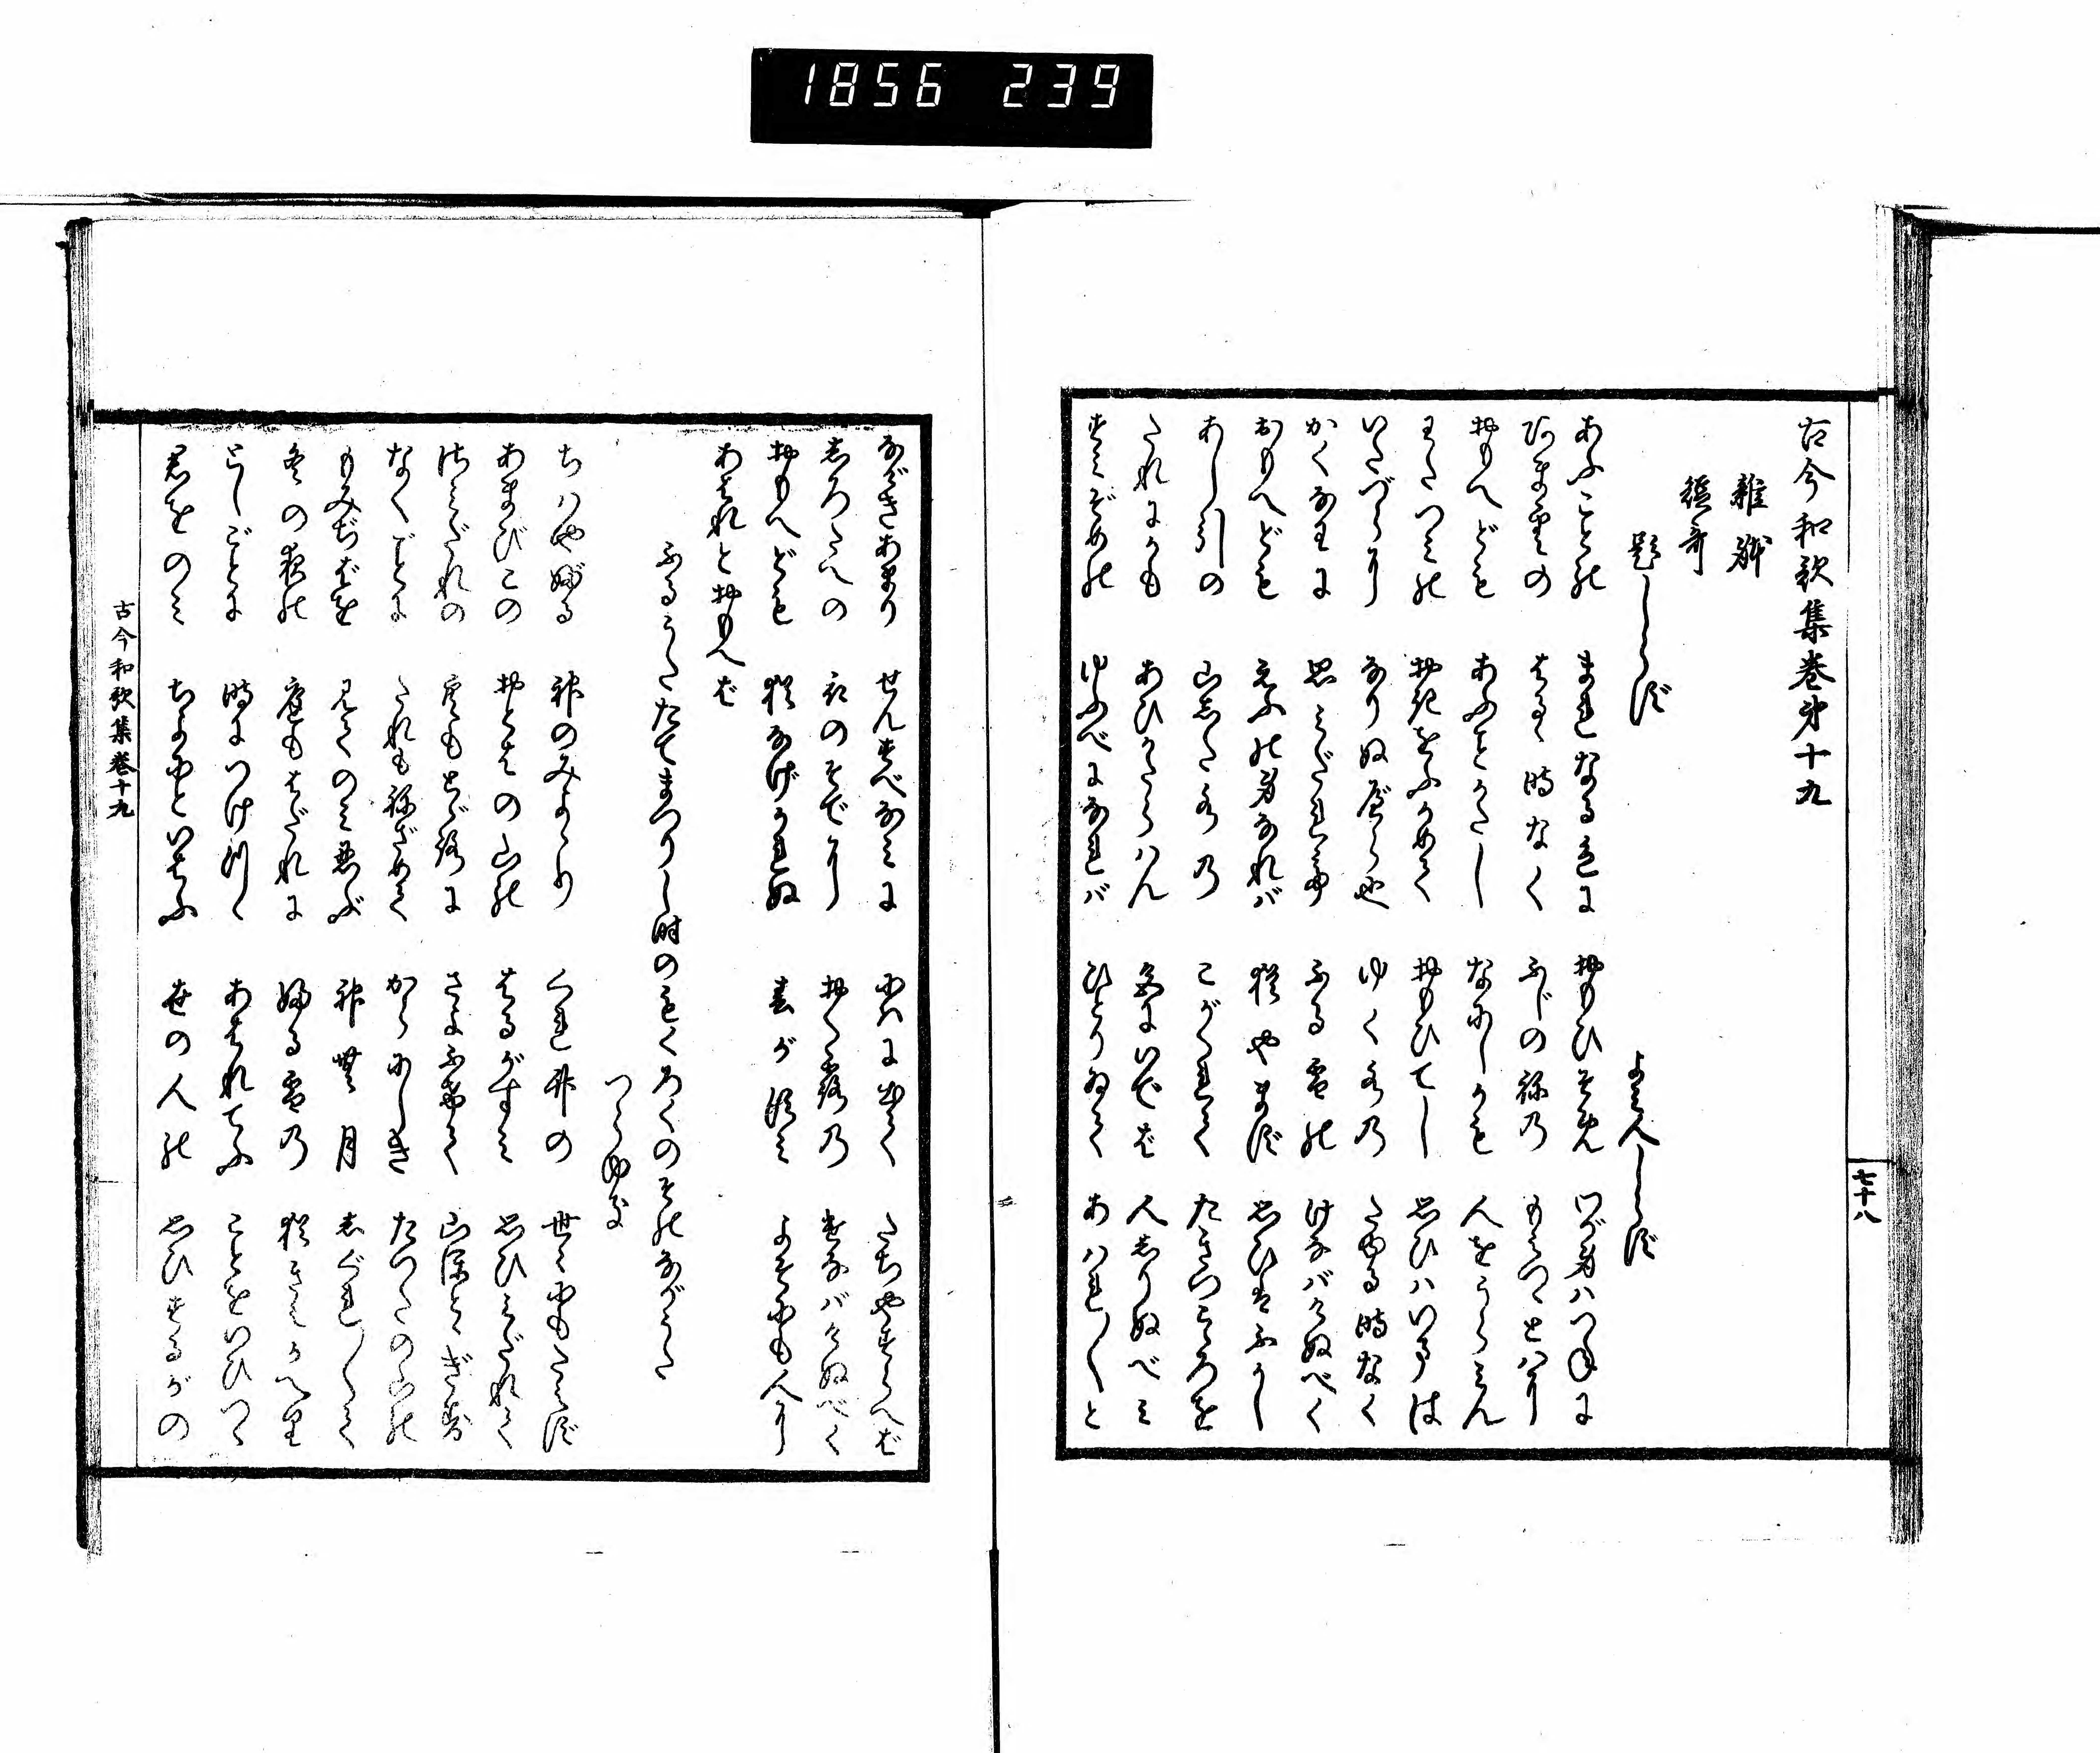 1856 239
古今和歌集巻第十九
雑躰
短哥
題しらず
よみ人しらず
あふことの まれなる色に おもひそめ わが身ハつねに
あま雲の はるゝ時なく ふじの祢乃 もえつゝとハに
おもへども あふことかたし なにしかも 人をうらみん
わたつミの おきをふかめて おもひてし 思ひハいまは
いたづらに なりぬべら也 ゆく水乃 たゆる時なく
かくなわに 思ミだれて ふる雪の けなバけぬべく
おもへども えふの身なれバ 猶やまず 思ひはふかし
あし引の 山した水乃 こがくれて たきつこゝろを
たれにかも あひかたらハん 色にいでば 人しりぬべミ
すミぞめの ゆふべになれバ ひとりゐて あハれ〱と
七十八
なげきあまり せんすべなミに にハに出て たちやすらへば
しろたへの 衣のそでに おく露乃 きえなバけぬべく
おもへども 猶なげかれぬ 春が須ミ よそにも人に
あはんとおもへば
ふるうたたてまつりし時のもくろくのその長うた
つらゆき
ちハやぶる 神のみよゝり くれ竹の 世ゝにもたえず
あまびこの おとはの山の はるがすミ 思ひミだれて
さミだれの 空もとゞろに さよふけて 山ほとゝぎす
なくごとに たれも祢ざめて からにしき たつたの山の
もみぢばを 見てのミ忍ぶ 神無月 しぐれ〱て
冬の夜の 庭もはだれに ふる雪乃 猶きえかへり
としごとに 時につけつゝ あはれてふ ことをいひつゝ
君をのミ ちよにといはふ 世の人の 思ひするがの
古今和歌集巻十九